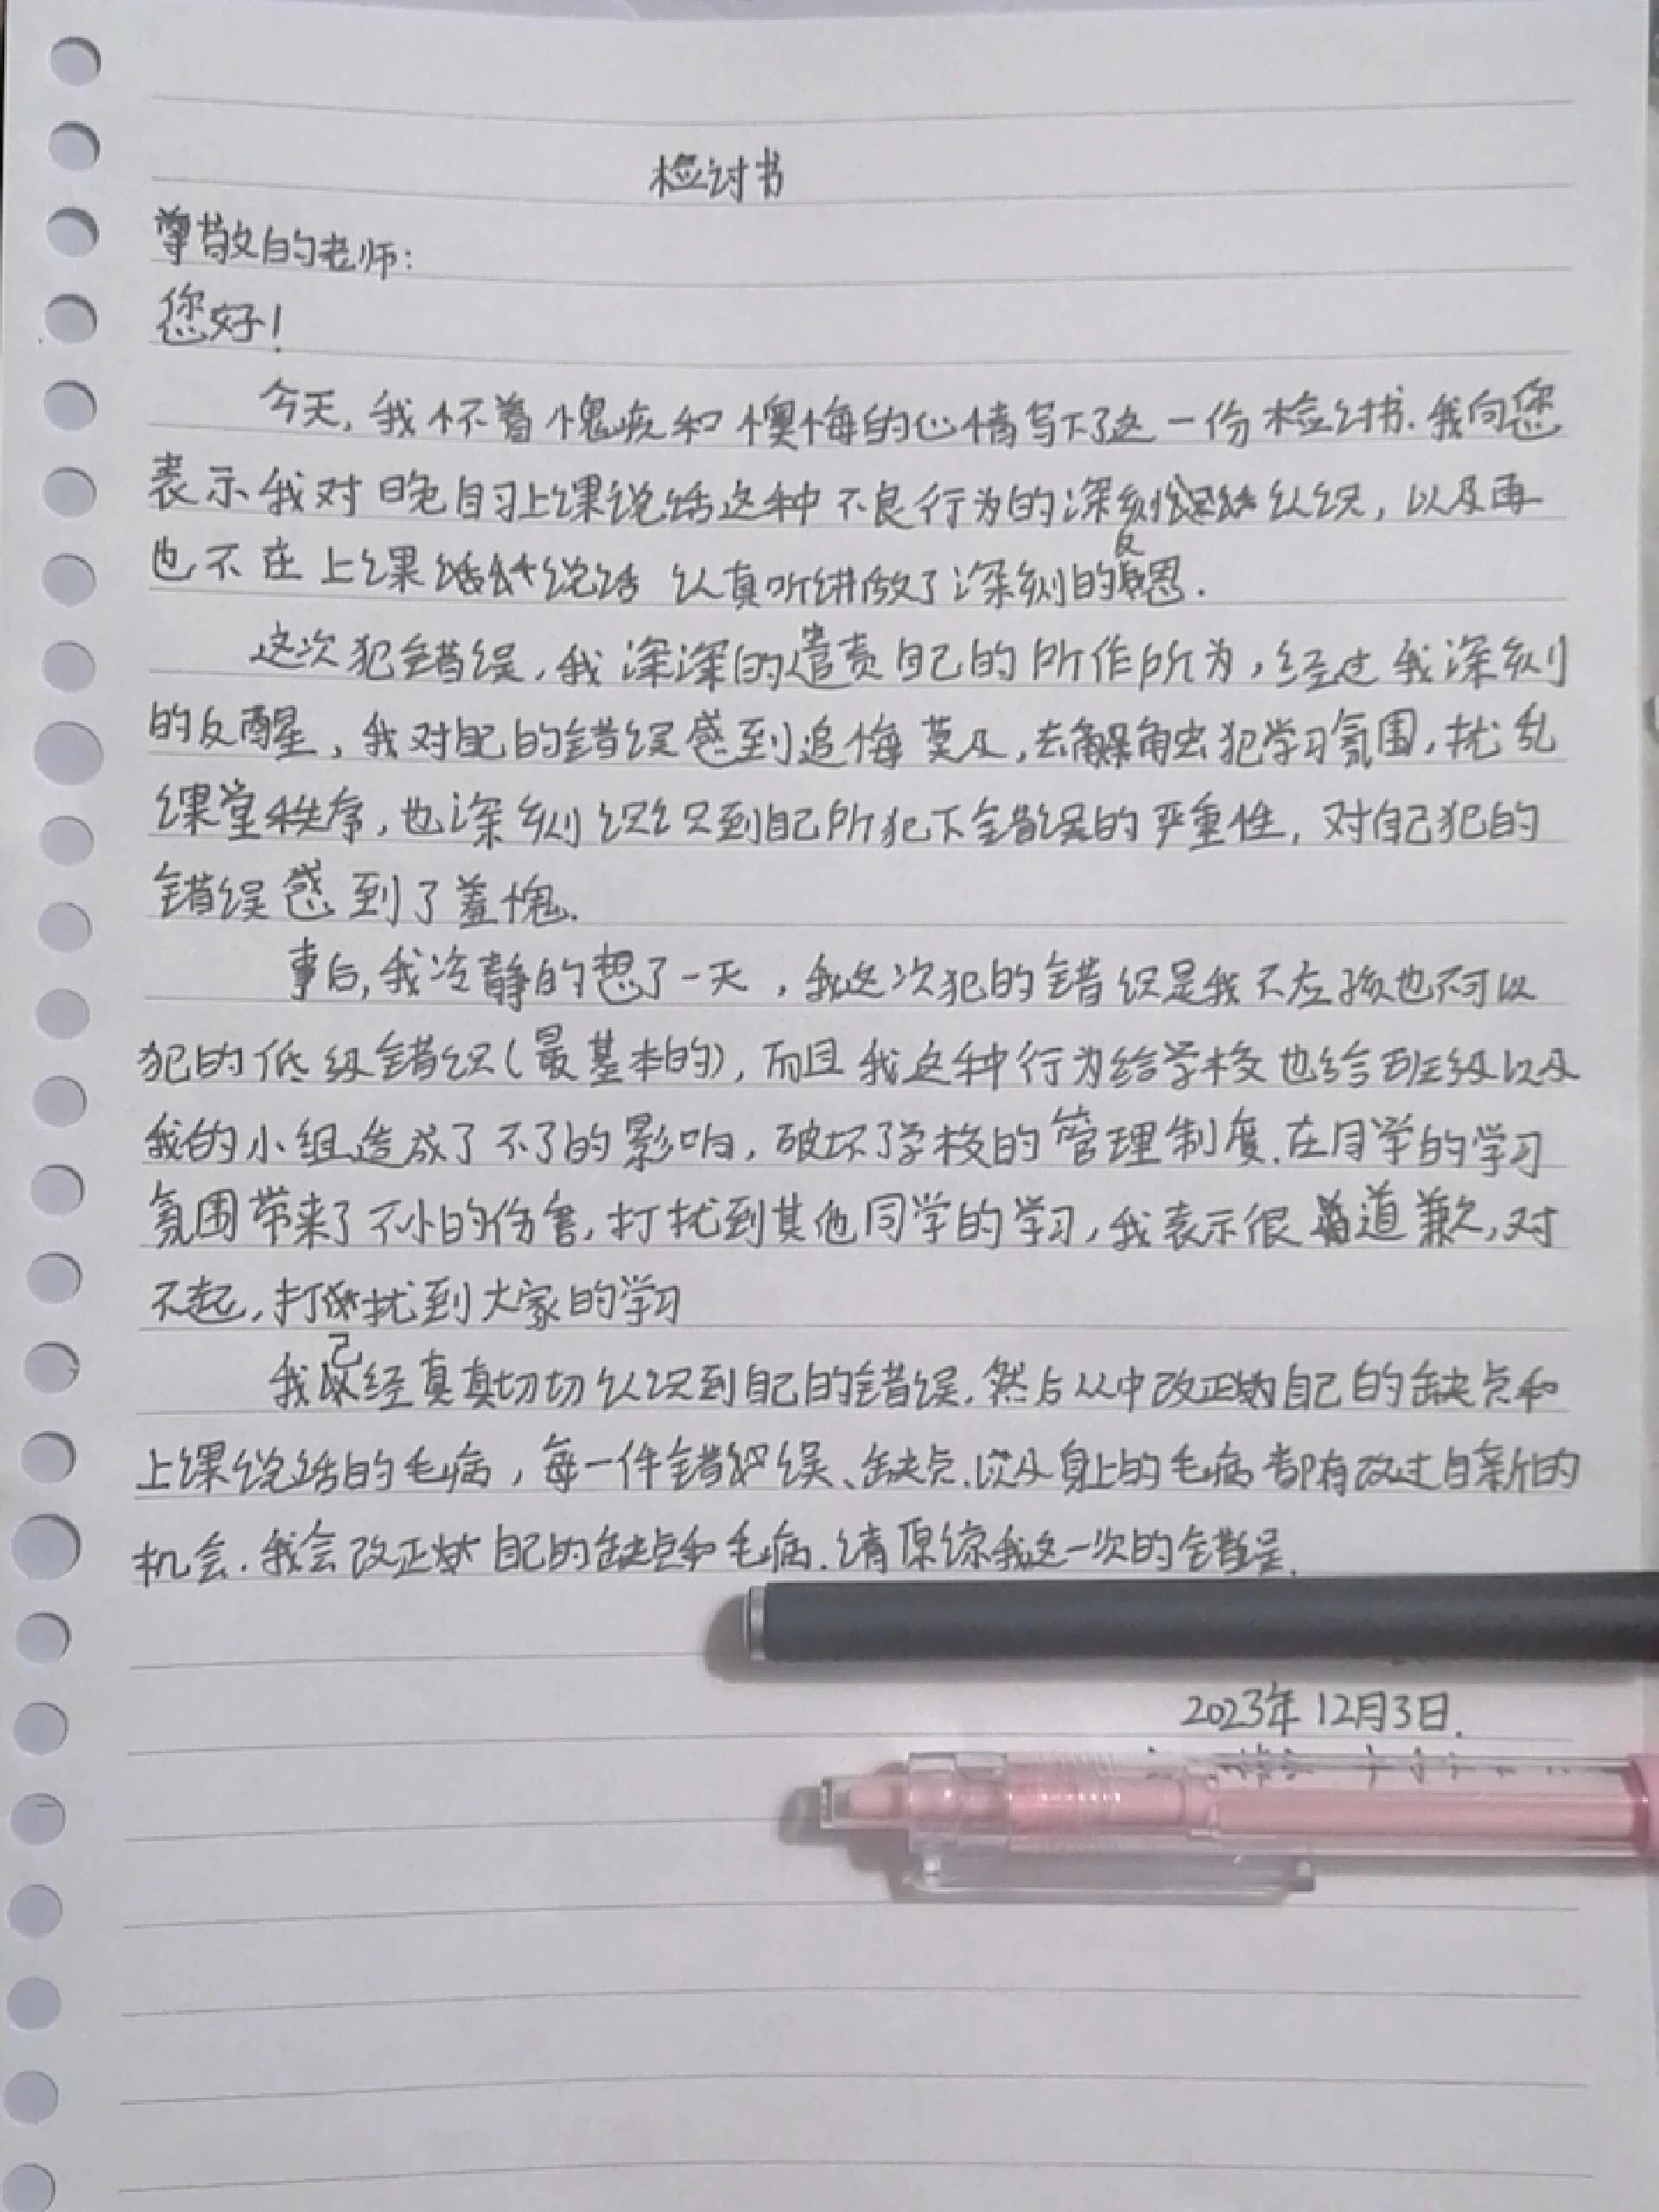 检讨书
尊敬的老师:
您好!
今天,我怀着愧疚和懊悔的心情写下了这一份检讨书.我向您
表示我对晚自习上课说话这种不良行为的深刻认识,以及再
也不在上课说话认真听讲做了深刻的反思.
这次犯错误,我深深的谴责自己的所作所为,经过我深刻
的反醒,我对自己的错误感到追悔莫及,去触犯学习氛围,扰乱
课堂秩序,也深刻识识到自己所犯下错误的严重性,对自己犯的
错误感到了羞愧.
事后,我冷静的想了一天,我这次犯的错识是我不应该也不可以
犯的低级错识(最基本的),而且我这种行为给学校也给班级以及
我的小组造成了不了的影响,破坏了学校的管理制度.在同学的学习
氛围带来了不小的伤害,打扰到其他同学的学习,我表示很道歉,对
不起,打扰到大家的学习
我己经真真切切认识到自己的错误.然后从中改正自己的缺点和
上课说话的毛病,每一件错误、缺点.以及身上的毛病都有改过自新的
机会.我会改正自己的缺点和毛病.请原谅我这一次的错误.
2023年12月3日.